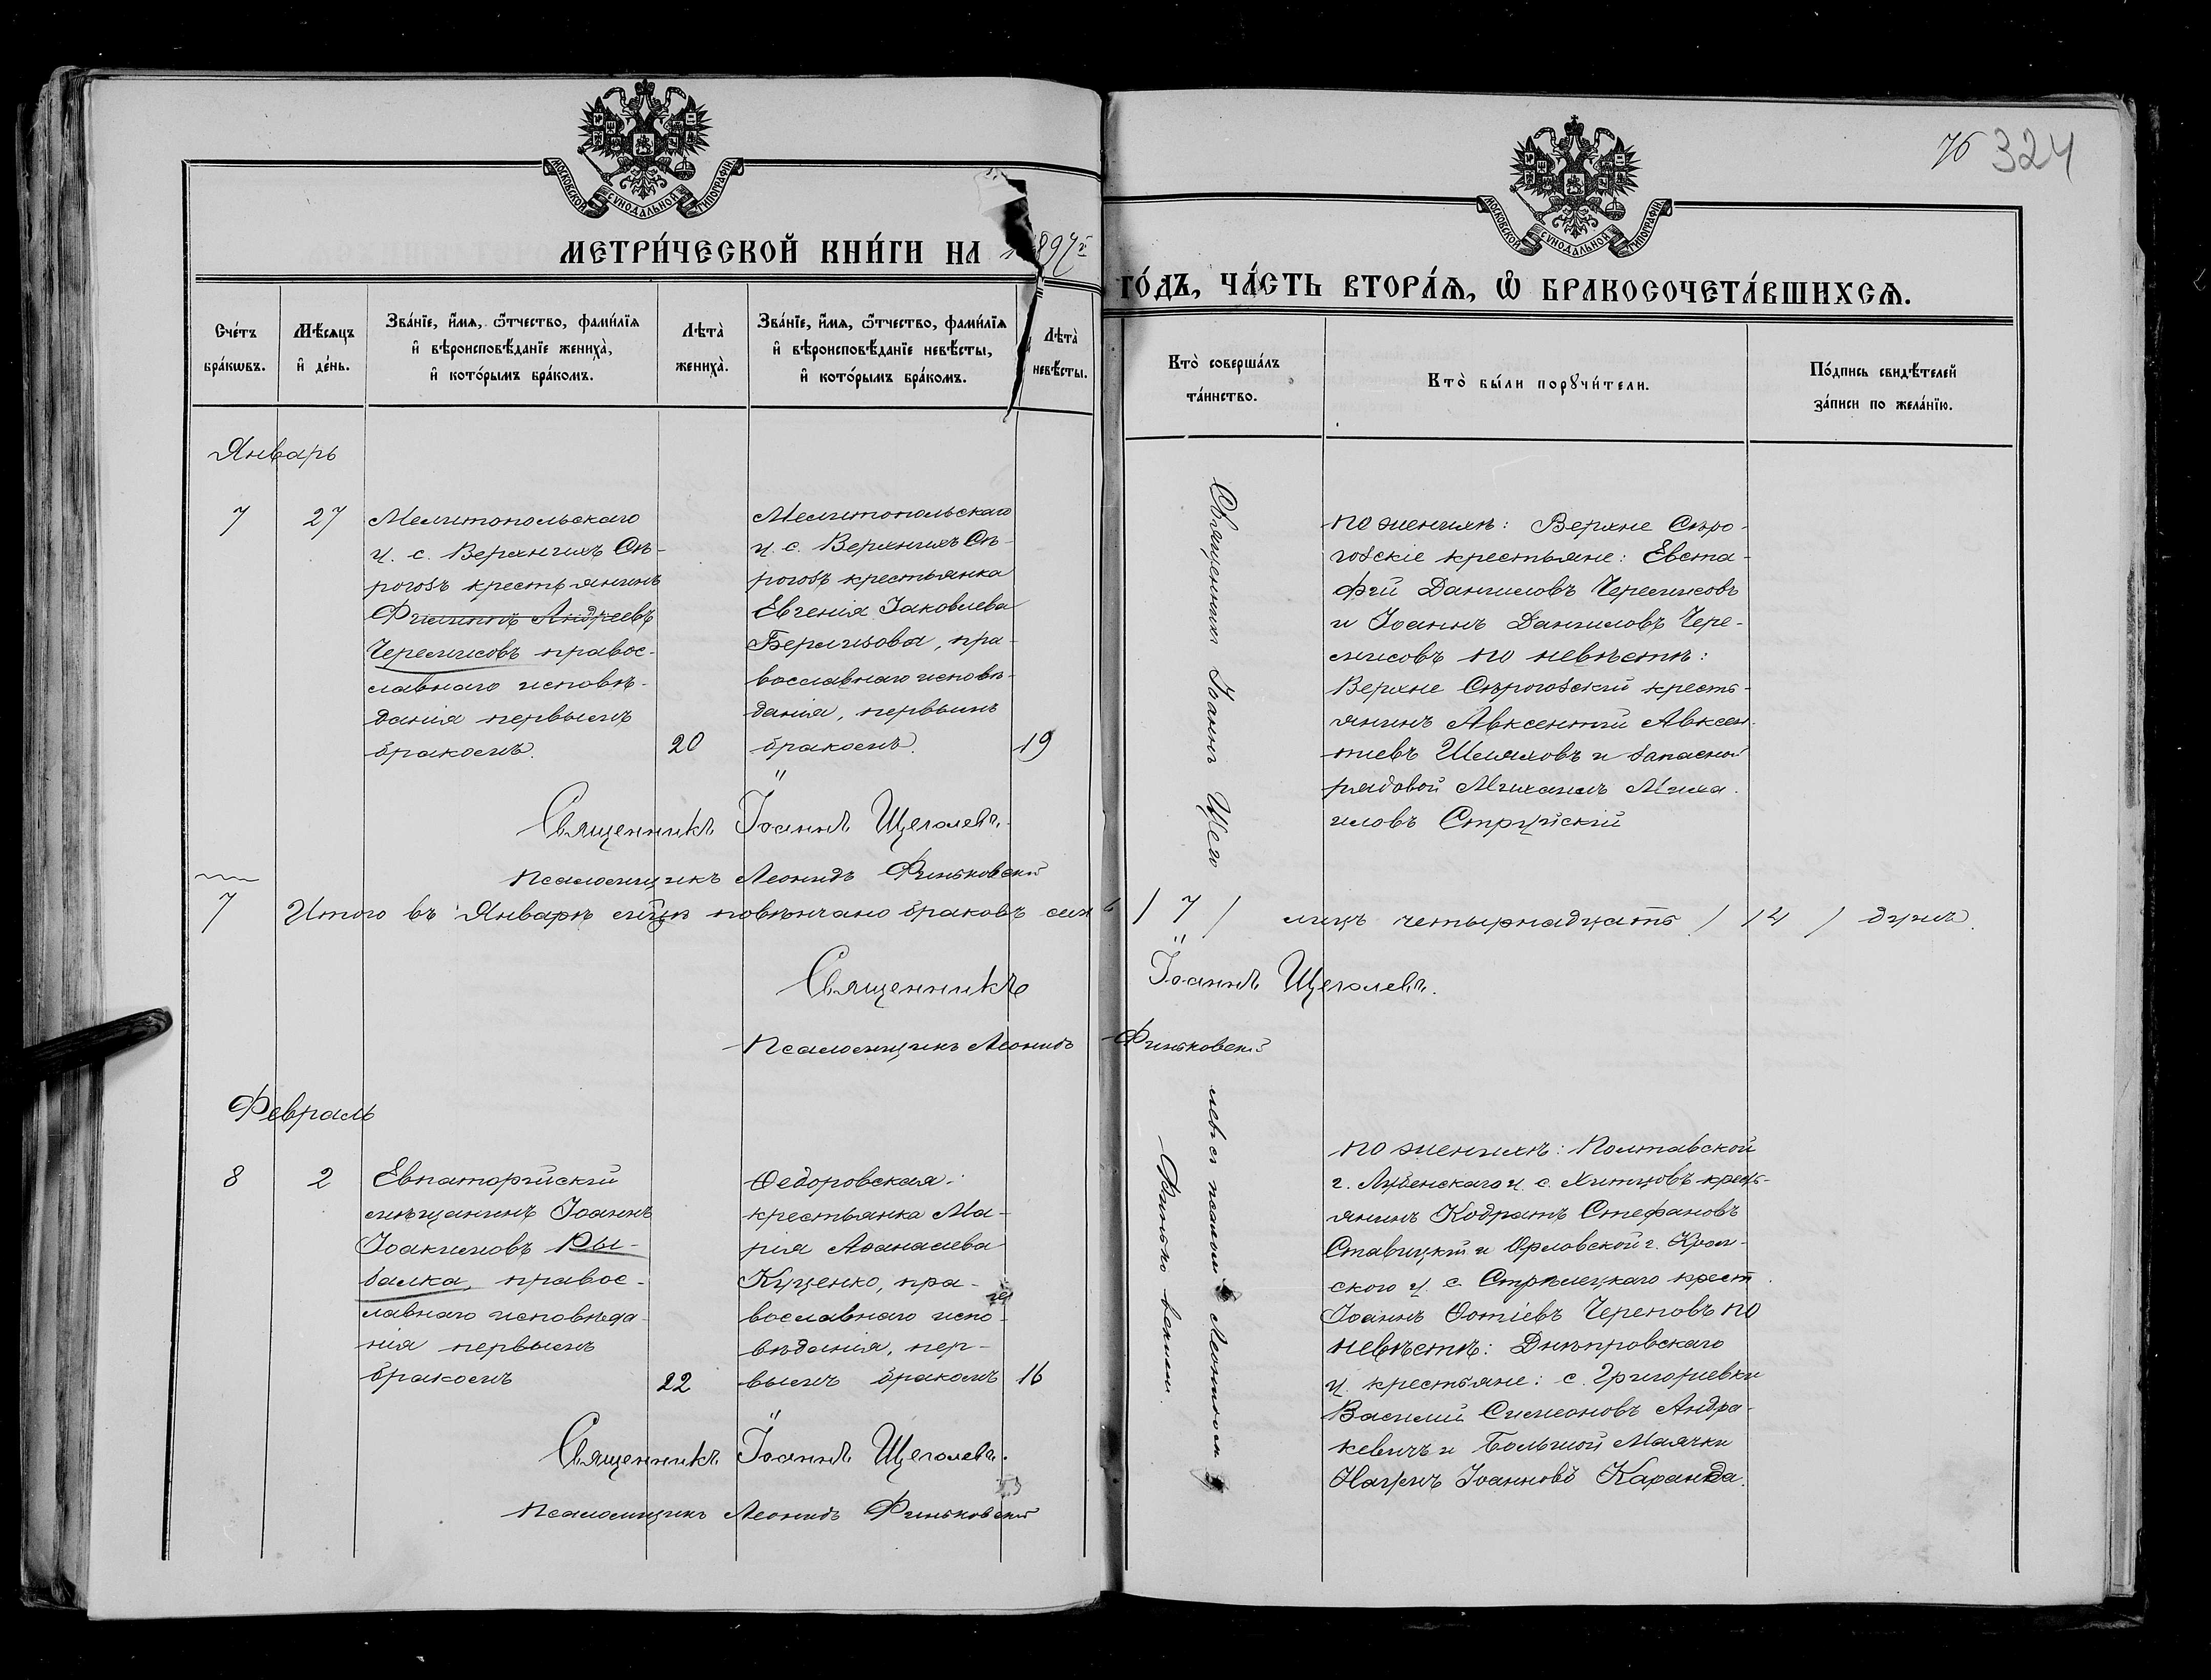 76 324
МОСКОВСКОЙ СѴНОДАЛЬНОЙ ТИПОГРАФІИ
МОСКОВСКОЙ СѴНОДАЛЬНОЙ ТИПОГРАФІИ
МЕТРИ́ЧЕСКОЙ КНИ́ГИ НА 1897й
ГО́ДЪ, ЧА́СТЬ ВТОРА́Я, Ѽ БРАКОСОЧЕТА́ВШИХСЯ.
Сче́тъ
бра́кѡвъ.
Мѣ́сяцъ
и҆ де́нь.
Зва́нїе, и҆́мя, ѻ҆́тчество, фами́лїя
и҆ вѣроисповѣ́данїе жениха̀,
и҆ кото́рымъ бра́комъ.
Лѣта̀
жениха̀.
Зва́нїе, и҆́мя, ѻ҆́тчество, фами́лїя
и҆ вѣроисповѣ́данїе невѣ́сты,
и҆ кото́рымъ бра́комъ.
Лѣта̀
невѣ́сты.
Кто̀ соверша́лъ
та́инство.
Кто̀ бы́ли порꙋчи́тели.
По́дпись свидѣ́телей
за́писи по жела́нїю.
Январь
7
27
Мелитопольскаго
у. с. Верхнихъ Сѣ-
рогозъ крестьянинъ
Филиппъ Андреевъ
Черемисовъ правос-
лавнаго исповѣ-
данія первымъ
бракомъ.
20
Мелитопольскаго
у. с. Верхнихъ Сѣ-
рогозъ крестьянка
Евгенія Іаковлева
Берлизова, пра-
вославнаго исповѣ-
данія, первымъ
бракомъ.
19
Священникъ Іоаннъ Щего
левъ съ псалом Леонидом
Финьковским.
по женихѣ: Верхне Сѣро-
гозскіе крестьяне: Евста-
фій Даниловъ Черемисовъ
и Іоаннъ Даниловъ Чере-
мисовъ по невѣстѣ:
Верхне Сѣрогозскій кресть-
янинъ Авксентій Авксен-
тіевъ Шеляховъ и запасный
рядовой Михаилъ Миха-
иловъ Струйскій
Священникъ Іоаннъ Щеголевъ.
Псаломщикъ Леонидъ Финьковскій
7 Итого въ Январѣ мѣцѣ повѣнчано браковъ семь / 7 / лицъ четырнадцать / 14 / душъ.
Священникъ Іоаннъ Щеголевъ.
Псаломщикъ Леонидъ Финьковскій
Февраль
8
2
Евпаторійскій
мѣщанинъ Іоаннъ
Іоакимовъ Ры-
балка, правос-
лавнаго исповѣда-
нія первымъ
бракомъ
22
Ѳедоровская
крестьянка Ма-
рія Аѳанасіева
Куценко, пра-
вославнаго испо-
вѣданія, пер-
вымъ бракомъ
16
по женихѣ: Полтавской
г. Лубенскаго у. с. Хитцовъ кресть-
янинъ Кодратъ Стефановъ
Ставицкій и Орловской г. Кром-
ского у. с. Стрѣлецкаго крест.
Іоаннъ Ѳотіевъ Череповъ по
невѣстѣ: Днѣпровскаго
у. крестьяне: с. Григориевки
Василій Симеоновъ Андра-
кевичъ и Большой Маячки
Наумъ Іоанновъ Каранда.
Священникъ Іоаннъ Щеголевъ.
Псаломщикъ Леонидъ Финьковскій